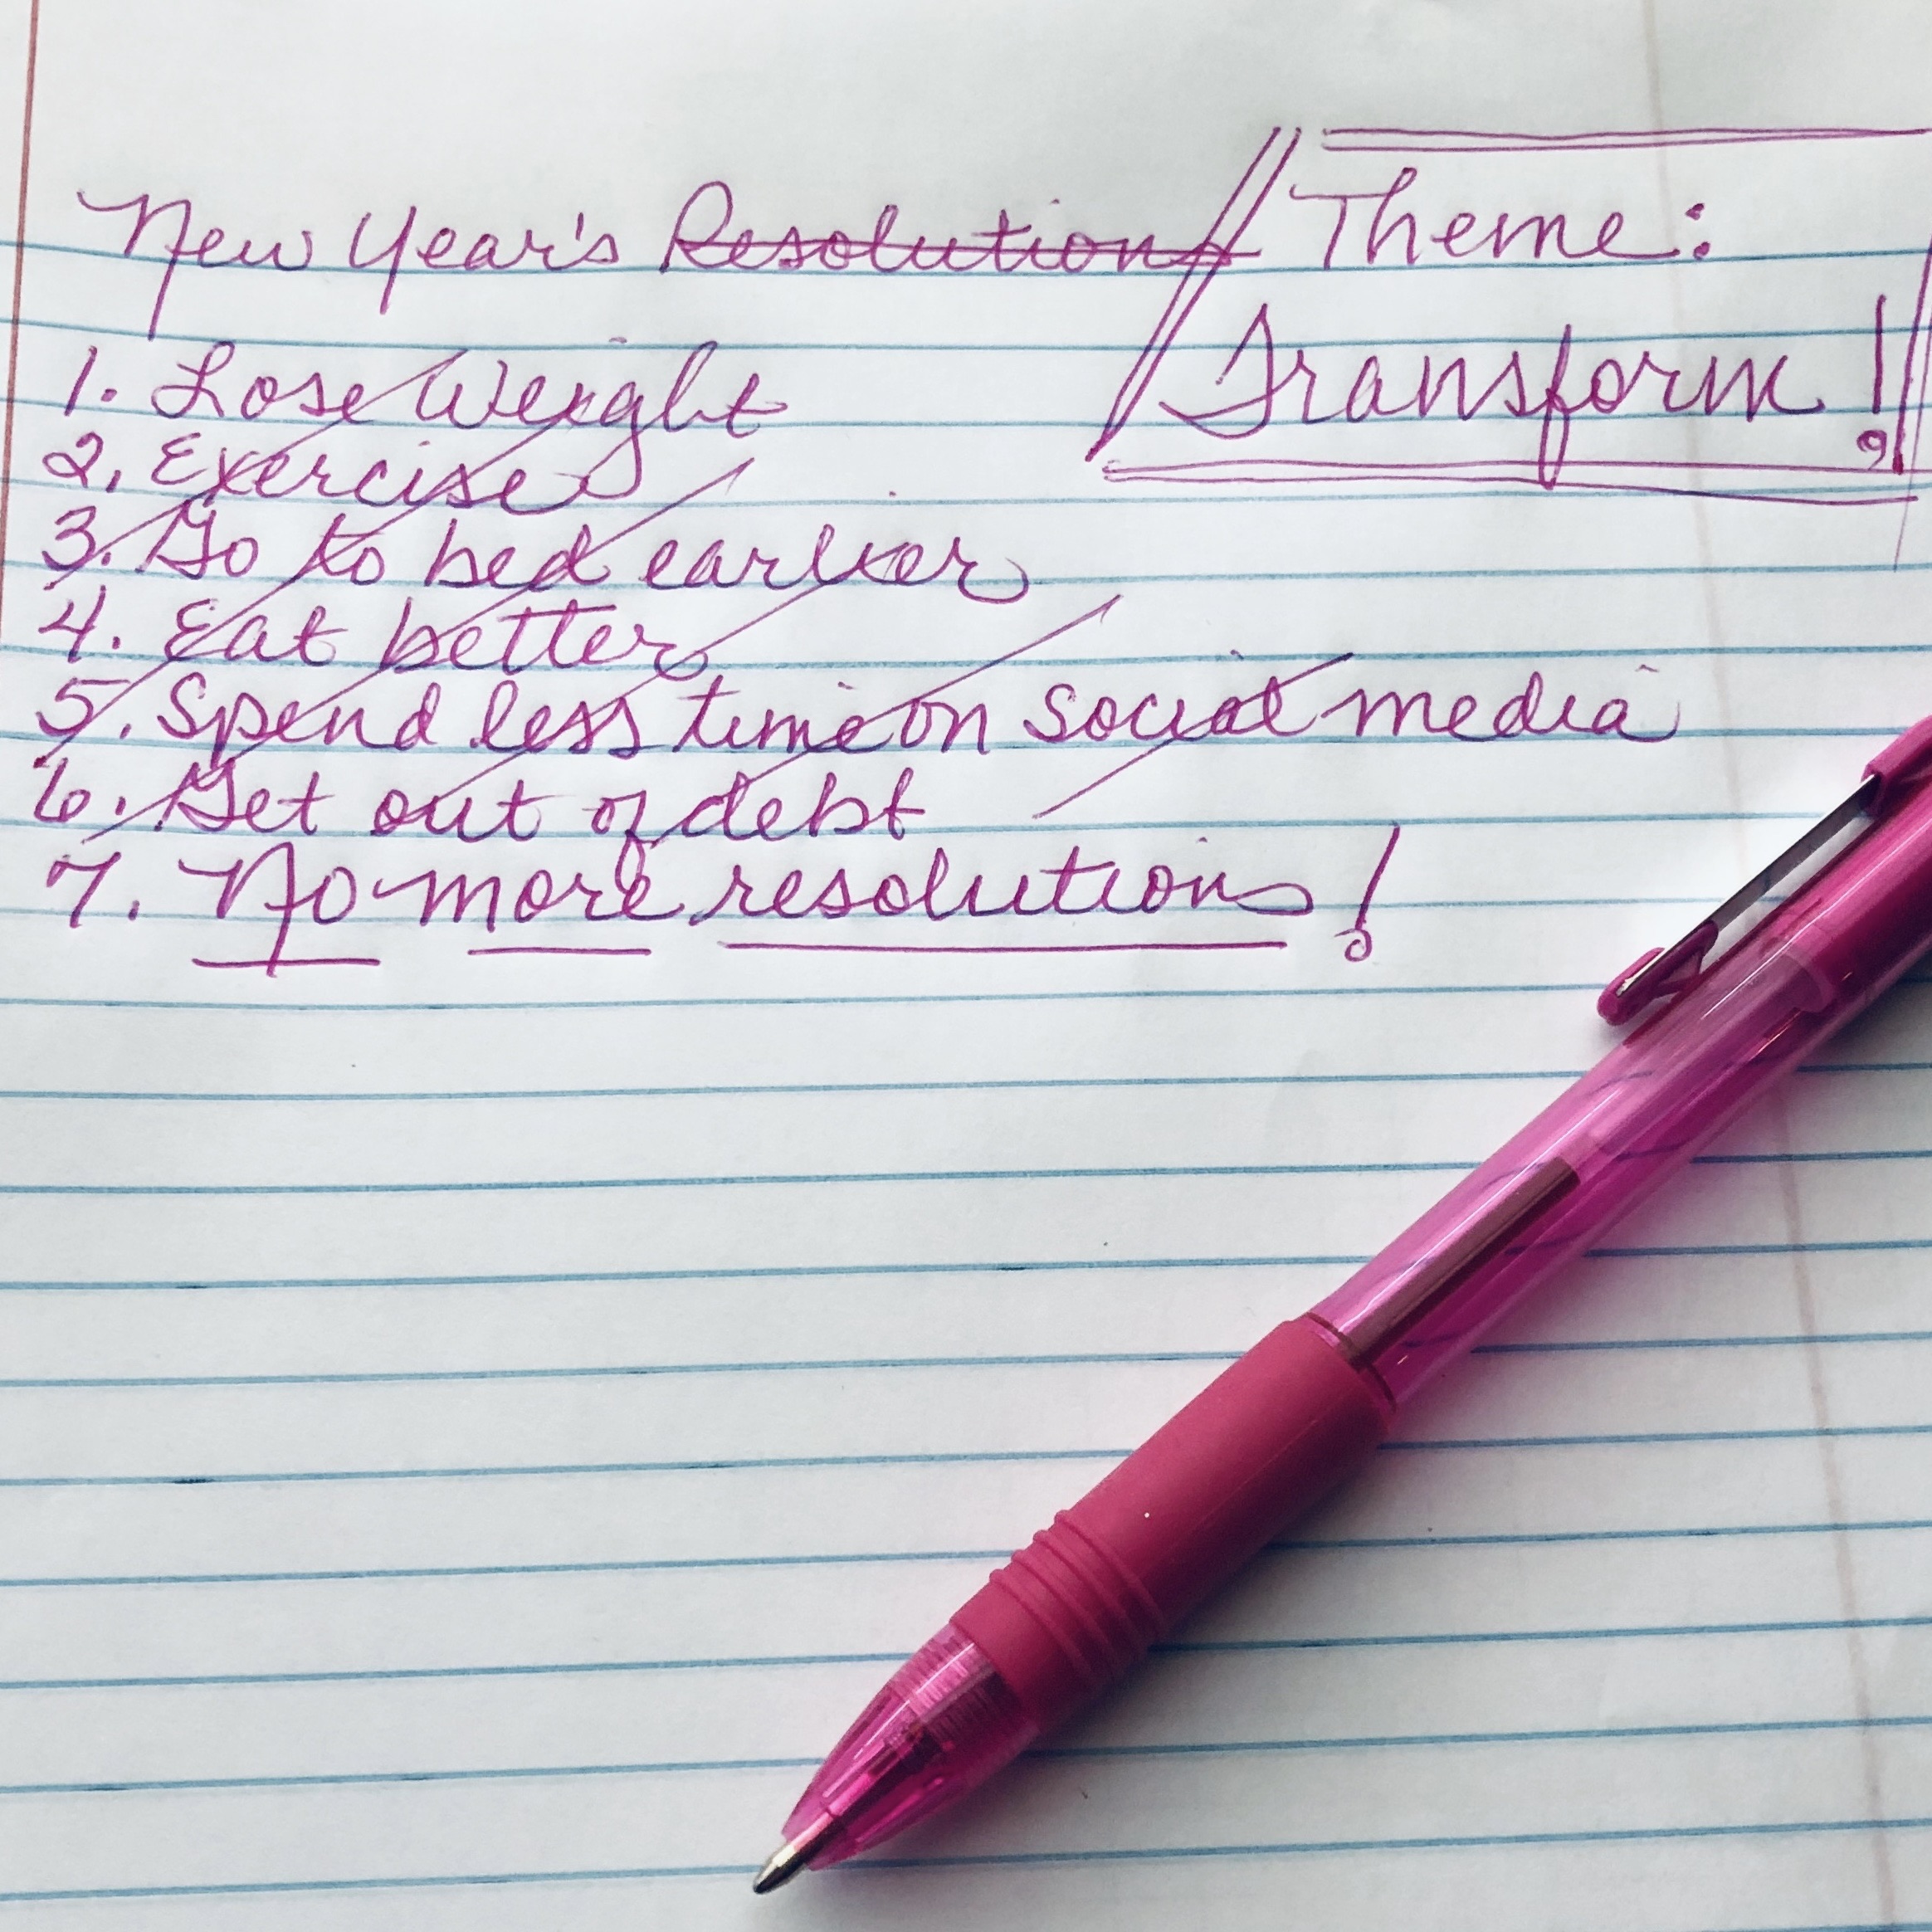 New Year's Resolutions Theme:
Transform!
1. Lose Weight
2. Exercise
3. Go to bed earlier
4. Eat better
5. Spend less time on social media
6. Get out of debt
7. No more resolutions!